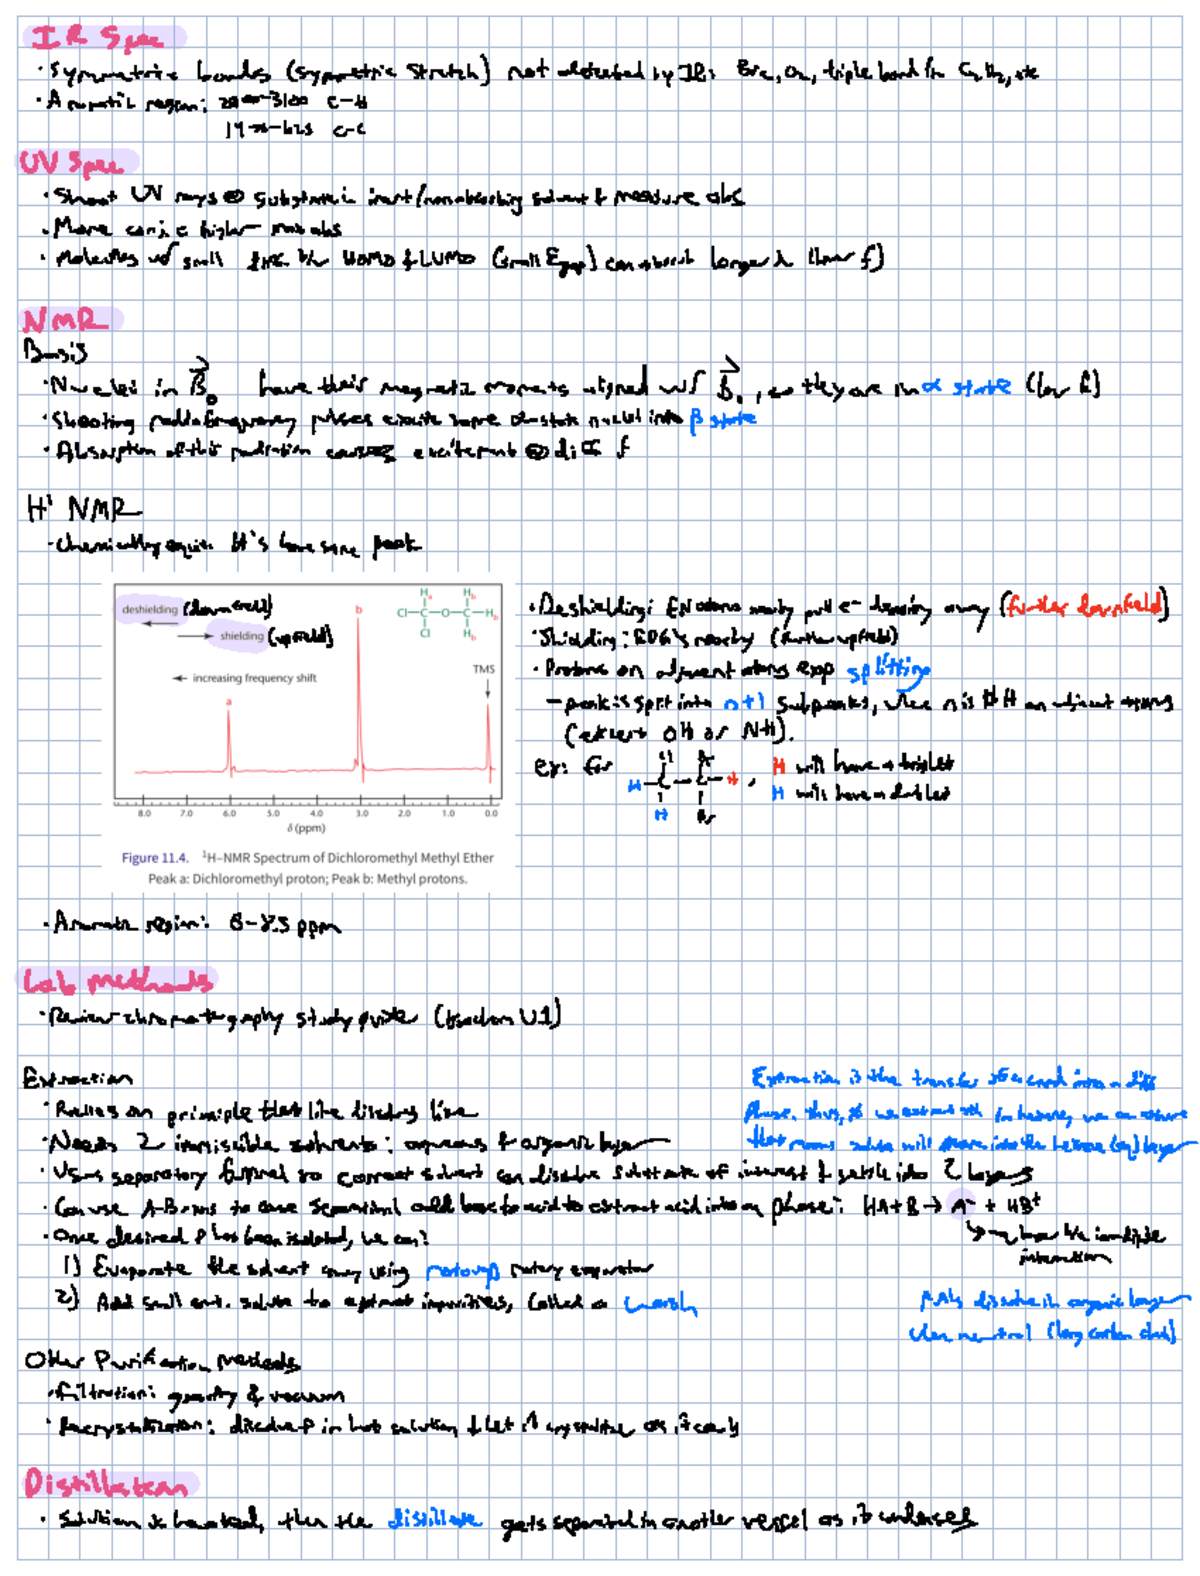 IR Spec
· Symmetric bonds (symmetric stretch) not detected by IR: Br₂, O₂, triple bond in C₂H₂, etc
· Aromatic region: 2900-3100 C-H
C-C
UV Spec
· Shoot UV rays @ substrate in inert/nonabsorbing solvent & measure abs
· More conj = higher max abs
· Molecules w/ small diff. b/w HOMO & LUMO (small E gap) can absorb longer λ (lower f)
NMR
Basis
· Nuclei in B₀ have their magnetic moments aligned w/ B₀, so they are in α state (low E)
· Shooting radiofrequency pulses excite some α-state nuclei into β state
· Absorption of this radiation causes excitement @ diff f
H¹ NMR
- Chemically equiv. H's have same peak
deshielding (downfield)
shielding (upfield)
increasing frequency shift
a
b
TMS
Hₐ H_b
Cl-C-O-C-H_b
Cl H_b
8.0 7.0 6.0 5.0 4.0 3.0 2.0 1.0 0.0
δ (ppm)
Figure 11.4. ¹H–NMR Spectrum of Dichloromethyl Methyl Ether
Peak a: Dichloromethyl proton; Peak b: Methyl protons.
· Deshielding: EN atoms nearby pull e⁻ density away (further downfield)
· Shielding: EDG's nearby (further upfield)
· Protons on adjacent atoms exp splitting
- peak is split into n+1 subpeaks, where n is # H on adjacent atoms
(except OH or N-H).
ex: for
Cl Br
H-C-C-H ,
H Br
H will have a triplet
H will have a doublet
· Aromatic region: 6-8.5 ppm
Lab methods
· Review chromatography study guide (biochem U1)
Extraction
· Relies on principle that like dissolves like
· Needs 2 immiscible solvents: aqueous & organic layer
· Uses separatory funnel so correct solvent can dissolve substrate of interest & settle into 2 layers
· Can use A-B rxns to ease separation! add base to acid to extract acid into aq phase: HA+B → A⁻ + HB⁺
interaction
· Once desired P has been isolated, we can:
1) Evaporate the solvent away using rotovap rotary evaporator
2) Add small amt. solute to extract impurities, called a wash
Extraction is the transfer of a cmpd into a diff
phase. thus, if we extract with hexane, we
layer
dissolve in organic layer
when neutral (long carbon chain)
Other Purification Methods
· Filtration: gravity & vacuum
· Recrystallization: dissolve P in hot solution & let it crystallize as it cools
Distillation
· Solution is heated, then the distillate gets separated in another vessel as it condenses